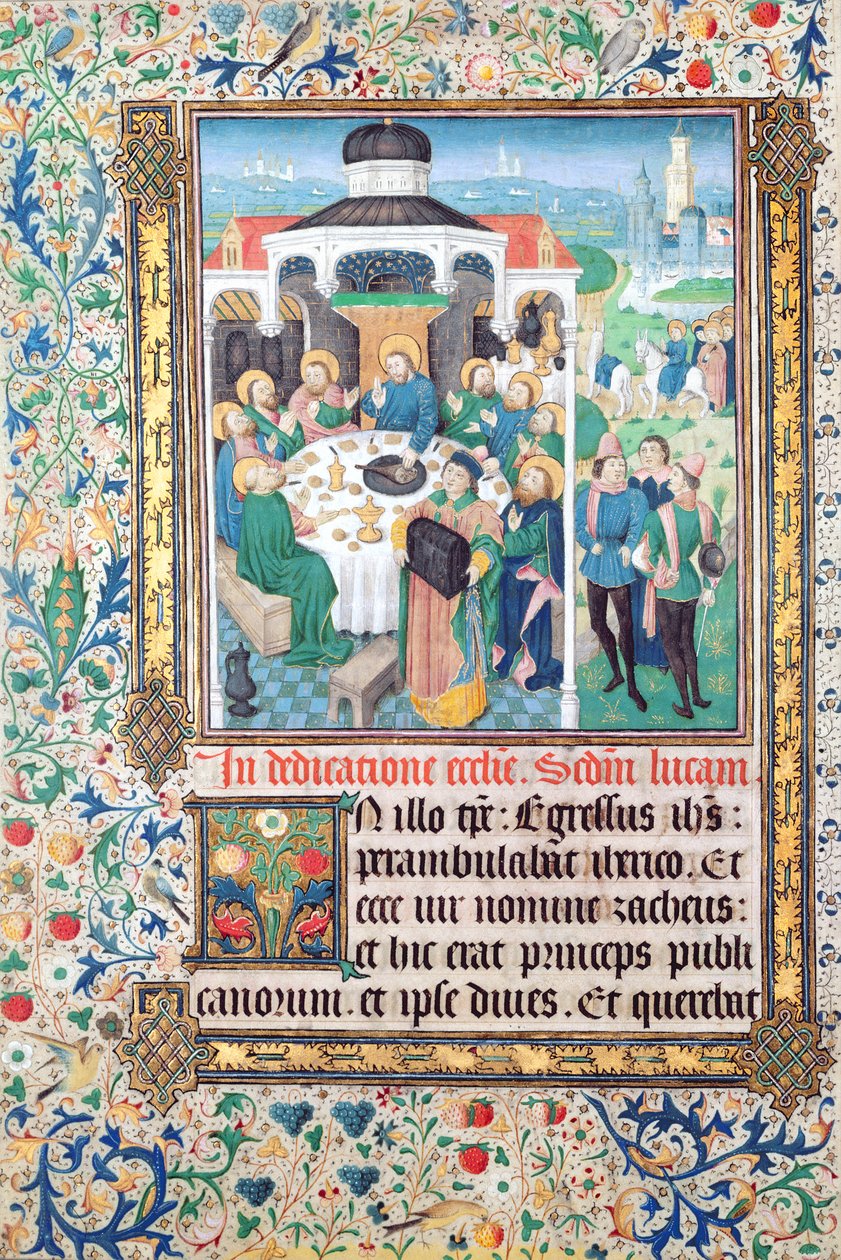 In dedicatione eccl̄ie. Scdm̄ lucam.
IN illo tp̄e: Egressus ih̄s:
perambulab̄at iherico. Et
ecce uir nomine zacheus:
et hic erat princeps publi
canorum. et ipse diues. Et querebat